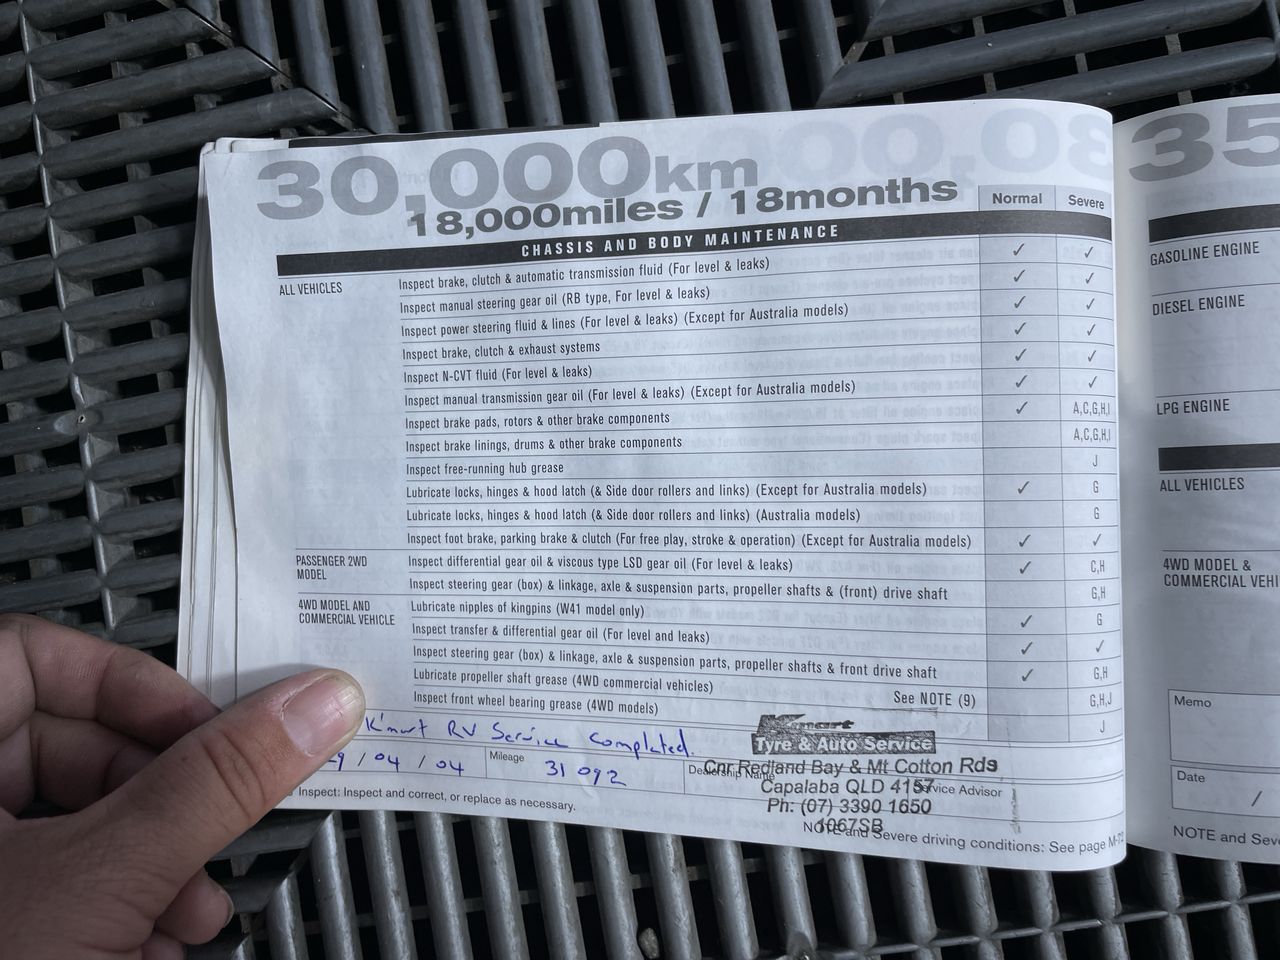 30,000km
18,000miles / 18months
Normal Severe
CHASSIS AND BODY MAINTENANCE
ALL VEHICLES Inspect brake, clutch & automatic transmission fluid (For level & leaks) ✓ ✓
Inspect manual steering gear oil (RB type, For level & leaks) ✓ ✓
Inspect power steering fluid & lines (For level & leaks) (Except for Australia models) ✓ ✓
Inspect brake, clutch & exhaust systems ✓ ✓
Inspect N-CVT fluid (For level & leaks) ✓ ✓
Inspect manual transmission gear oil (For level & leaks) (Except for Australia models) ✓ ✓
Inspect brake pads, rotors & other brake components ✓ A,C,G,H,I
Inspect brake linings, drums & other brake components A,C,G,H,I
Inspect free-running hub grease J
Lubricate locks, hinges & hood latch (& Side door rollers and links) (Except for Australia models) ✓ G
Lubricate locks, hinges & hood latch (& Side door rollers and links) (Australia models) G
Inspect foot brake, parking brake & clutch (For free play, stroke & operation) (Except for Australia models) ✓ ✓
PASSENGER 2WD MODEL Inspect differential gear oil & viscous type LSD gear oil (For level & leaks) ✓ C,H
Inspect steering gear (box) & linkage, axle & suspension parts, propeller shafts & (front) drive shaft G,H
4WD MODEL AND COMMERCIAL VEHICLE Lubricate nipples of kingpins (W41 model only) ✓ G
Inspect transfer & differential gear oil (For level and leaks) ✓ ✓
Inspect steering gear (box) & linkage, axle & suspension parts, propeller shafts & front drive shaft ✓ G,H
Lubricate propeller shaft grease (4WD commercial vehicles) See NOTE (9) G,H,J
Inspect front wheel bearing grease (4WD models) J
K'mart RV Service Completed.
9 / 04 / 04 Mileage 31 092 Dealership Name Service Advisor
Kmart
Tyre & Auto Service
Cnr Redland Bay & Mt Cotton Rds
Capalaba QLD 4157
Ph: (07) 3390 1650
1067SB
Inspect: Inspect and correct, or replace as necessary.
NOTE and Severe driving conditions: See page M-
35
GASOLINE ENGINE
DIESEL ENGINE
LPG ENGINE
ALL VEHICLES
4WD MODEL &
COMMERCIAL VEHI
Memo
Date
/
NOTE and Seve